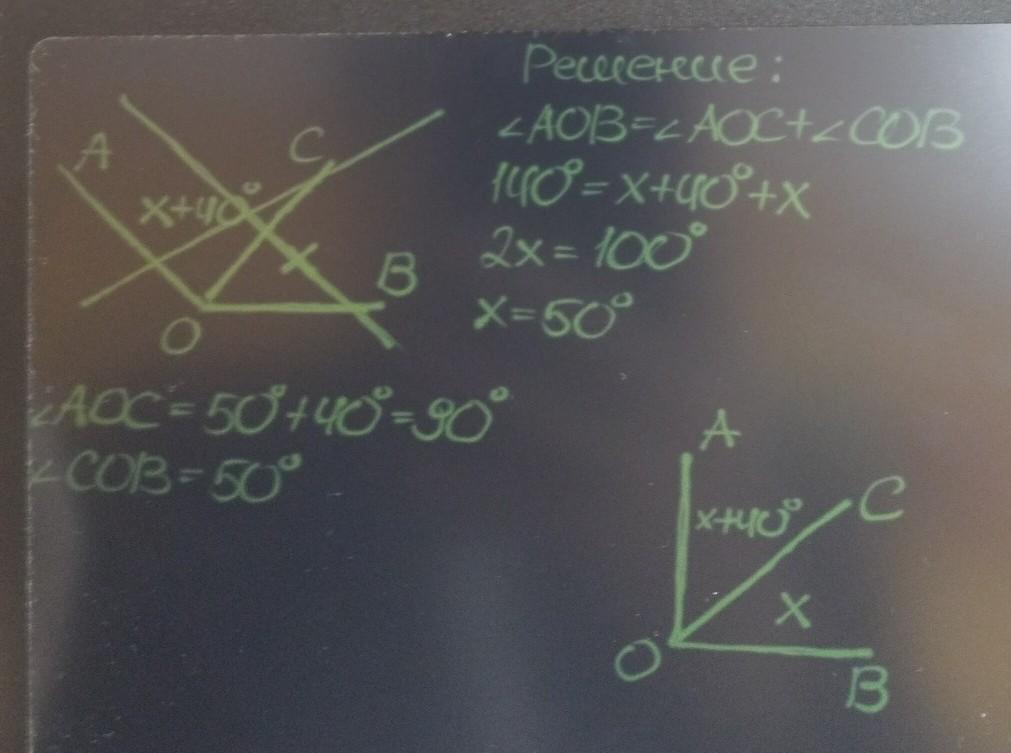 Решение:
∠AOB=∠AOC+∠COB
140°=x+40°+x
2x=100°
x=50°
A
C
x+40°
x
B
O
∠AOC=50°+40°=90°
∠COB=50°
A
x+40°
C
x
O
B